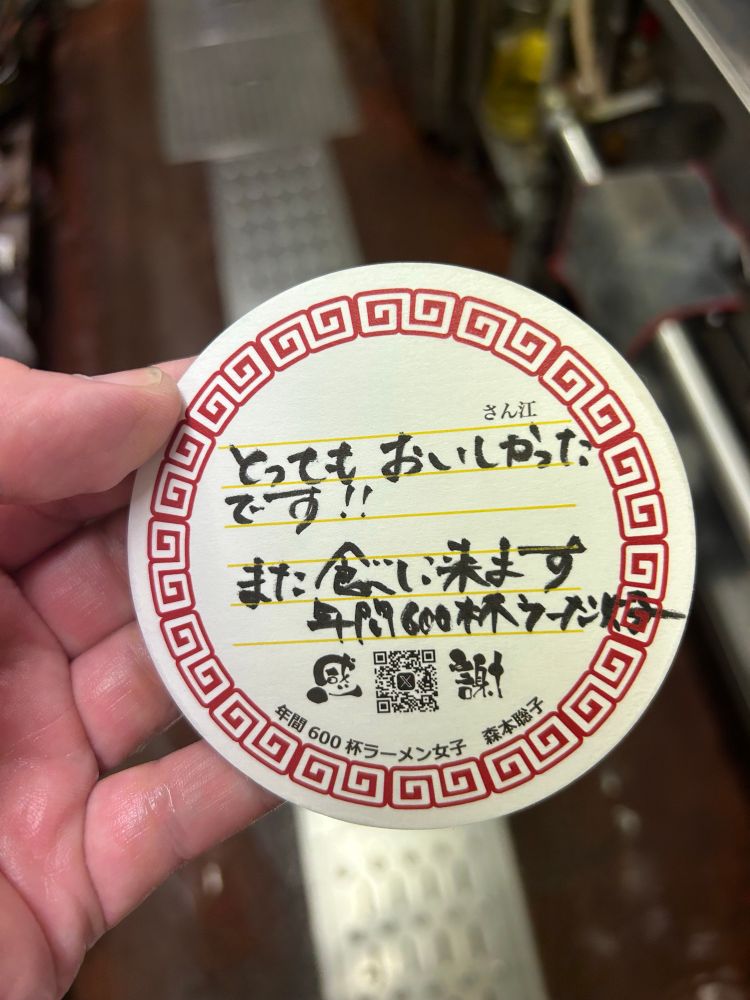 さん江
とっても おいしかった
です!!
また食べに来ます
年間600杯ラーメン女子
感 謝
年間600杯ラーメン女子 森本聡子